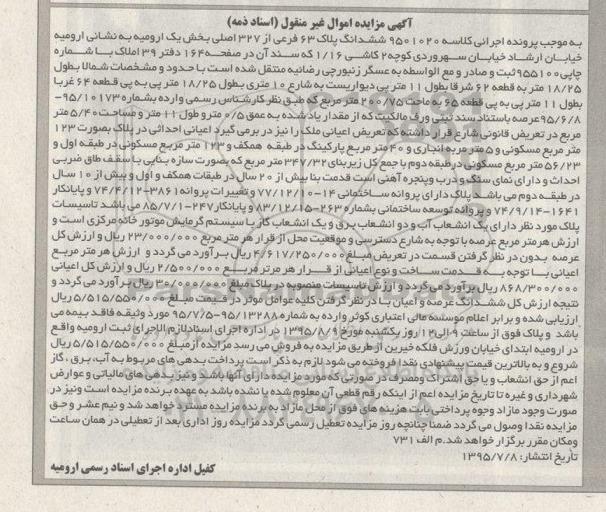 آگهی مزایده اموال غیر منقول (اسناد ذمه)
به موجب پرونده اجرائی کلاسه 9501020 ششدانگ پلاک 63 فرعی از 327 اصلی بخش یک ارومیه به نشانی ارومیه
خیابان ارشاد خیابان سهروردی کوچه 2 کاشی 1/16 که سند آن در صفحه 164 دفتر 39 املاک با شماره
چاپی 955100 ثبت و صادر و مع الواسطه به عسگر زنبورچی رضائیه منتقل شده است با حدود و مشخصات شمالا بطول
18/25 متر به قطعه 62 شرقا بطول 11 متر پی دیواریست به شارع 10 متری بطول 18/25 متر پی به پی قطعه 64 غربا
بطول 11 متر پی به پی قطعه 65 به ماحت 200/75 متر مربع که طبق نظر کارشناس رسمی وارده بشماره 10173-95/
95/6/8 عرصه باستناد سند ثبتی ورف مالکیت که از مقدار یاد شده به عمق 0/5 مترو طول 11 متر و مساحت 5/40 متر
مربع در تعریض قانونی شارع قرار داشته که تعریض اعیانی ملک را نیز در برمی گیرد اعیانی احداثی در پلاک بصورت 123
متر مربع مسکونی و 5 متر مربه انباری و 40 متر مربع پارکینگ در طبقه همکف و 123 متر مربع مسکونی در طبقه اول و
56/23 متر مربع مسکونی درطبقه دوم با جمع کل زیربنای 347/32 متر مربع که بصورت سازه بنایی با سقف طاق ضربی
احداث و دارای نمای سنگ و درب وپنجره آهنی است قدمت بنا بیش از 20 سال در طبقات همکف و اول و بیش از 10 سال
در طبقه دوم می باشد پلاک دارای پروانه ساختمانی 14-77/12/10 و تغییرات پروانه 3861-74/4/12 و پایانکار
1641-74/9/14 و پروانه توسعه ساختمانی بشماره 263-83/12/15 و پایانکار 247-85/7/1 می باشد تاسیسات
پلاک مورد نظر دارای یک انشعاب آب و دو انشعاب برق و یک انشعاب گاز با سیستم گرمایش موتور خانه مرکزی است و
ارزش هرمتر مربع عرصه با توجه به شارع دسترسی و موقعیت محل از قرار هر متر مربع 23/000/000 ریال و ارزش کل
عرصه بدون در نظر گرفتن قسمت در تعریض مبلغ 4/617/250/000 ریال برآورد می گردد و ارزش هر متر مربع
اعیانی با توجه به قدمت ساخت و نوع اعیانی از قرار هر متر مربع 2/500/000 ریال و ارزش کل اعیانی
868/300/000 ریال برآورد می گردد و ارزش تاسیسات منصوبه در پلاک مبلغ 30/000/000 ریال برآورد می گردد و
نتیجه ارزش کل ششدانگ عرصه و اعیان با در نظر گرفتن کلیه عوامل موثر در قیمت مبلغ 5/515/550/000 ریال
ارزیابی شده و برابر اعلام موسسه مالی اعتباری کوثر وارده به شماره 13288-95/7/5-95 مورد وثیقه فاقد بیمه می
باشد و پلاک فوق از ساعت 9 الی 12 روز یکشنبه مورخ 1395/8/9 در اداره اجرای اسنادلازم الاجرای ثبت ارومیه واقع
در ارومیه ابتدای خیابان ورزش فلکه خیرین از طریق مزایده به فروش می رسد مزایده ازمبلغ 5/515/550/000 ریال
شروع و به بالاترین قیمت پیشنهادی نقدا فروخته می شود لازم به ذکر است پرداخت بدهی های مربوط به آب، برق، گاز
اعم از حق انشعاب و یا حق اشتراک ومصرف در صورتی که مورد مزایده دارای آنها باشد و نیز بدهی های مالیاتی و عوارض
شهرداری و غیره تا تاریخ مزایده اعم از اینکه رقم قطعی آن معلوم شده یا نشده باشد به عهده برنده مزایده است ونیز در
صورت وجود مازاد وجوه پرداختی بابت هزینه های فوق از محل مازاد به برنده مزایده مسترد خواهد شد و نیم عشر و حق
مزایده نقدا وصول می گردد ضمنا چنانچه روز مزایده تعطیل رسمی گردد مزایده روز اداری بعد از تعطیلی در همان ساعت
ومکان مقرر برگزار خواهد شد. م الف 731
تاریخ انتشار: 1395/7/8
کفیل اداره اجرای اسناد رسمی ارومیه